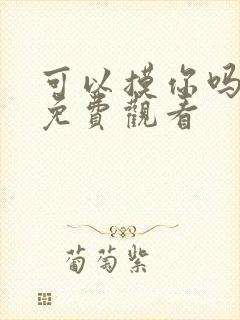 可以摸你吗
免費觀看
葡萄紫